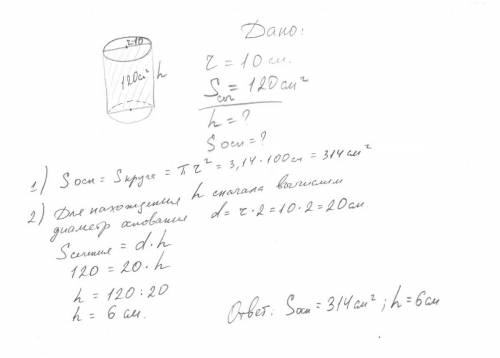 Дано:
r=10
120см² h
r = 10 см.
Sсеч = 120 см²
h = ?
Sосн = ?
1) Sосн = Sкруга = πr² = 3,14·100см = 314 см²
2) Для нахождения h сначала вычислим
диаметр основания d = r·2 = 10·2 = 20см
Sсечения = d·h
120 = 20·h
h = 120:20
h = 6 см.
Ответ: Sосн = 314 см²; h = 6 см